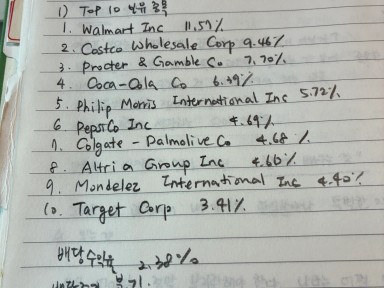 1) Top 10 보유 종목
1. Walmart Inc 11.57%
2. Costco Wholesale Corp 9.46%
3. Procter & Gamble Co 7.70%
4. Coca-Cola Co 6.39%
5. Philip Morris International Inc 5.72%
6 PepsiCo Inc 4.69%
7. Colgate - Palmolive Co 4.68%
8. Altria Group Inc 4.60%
9. Mondelez International Inc 4.40%
10. Target Corp 3.41%
배당수익율 2.38%
분기